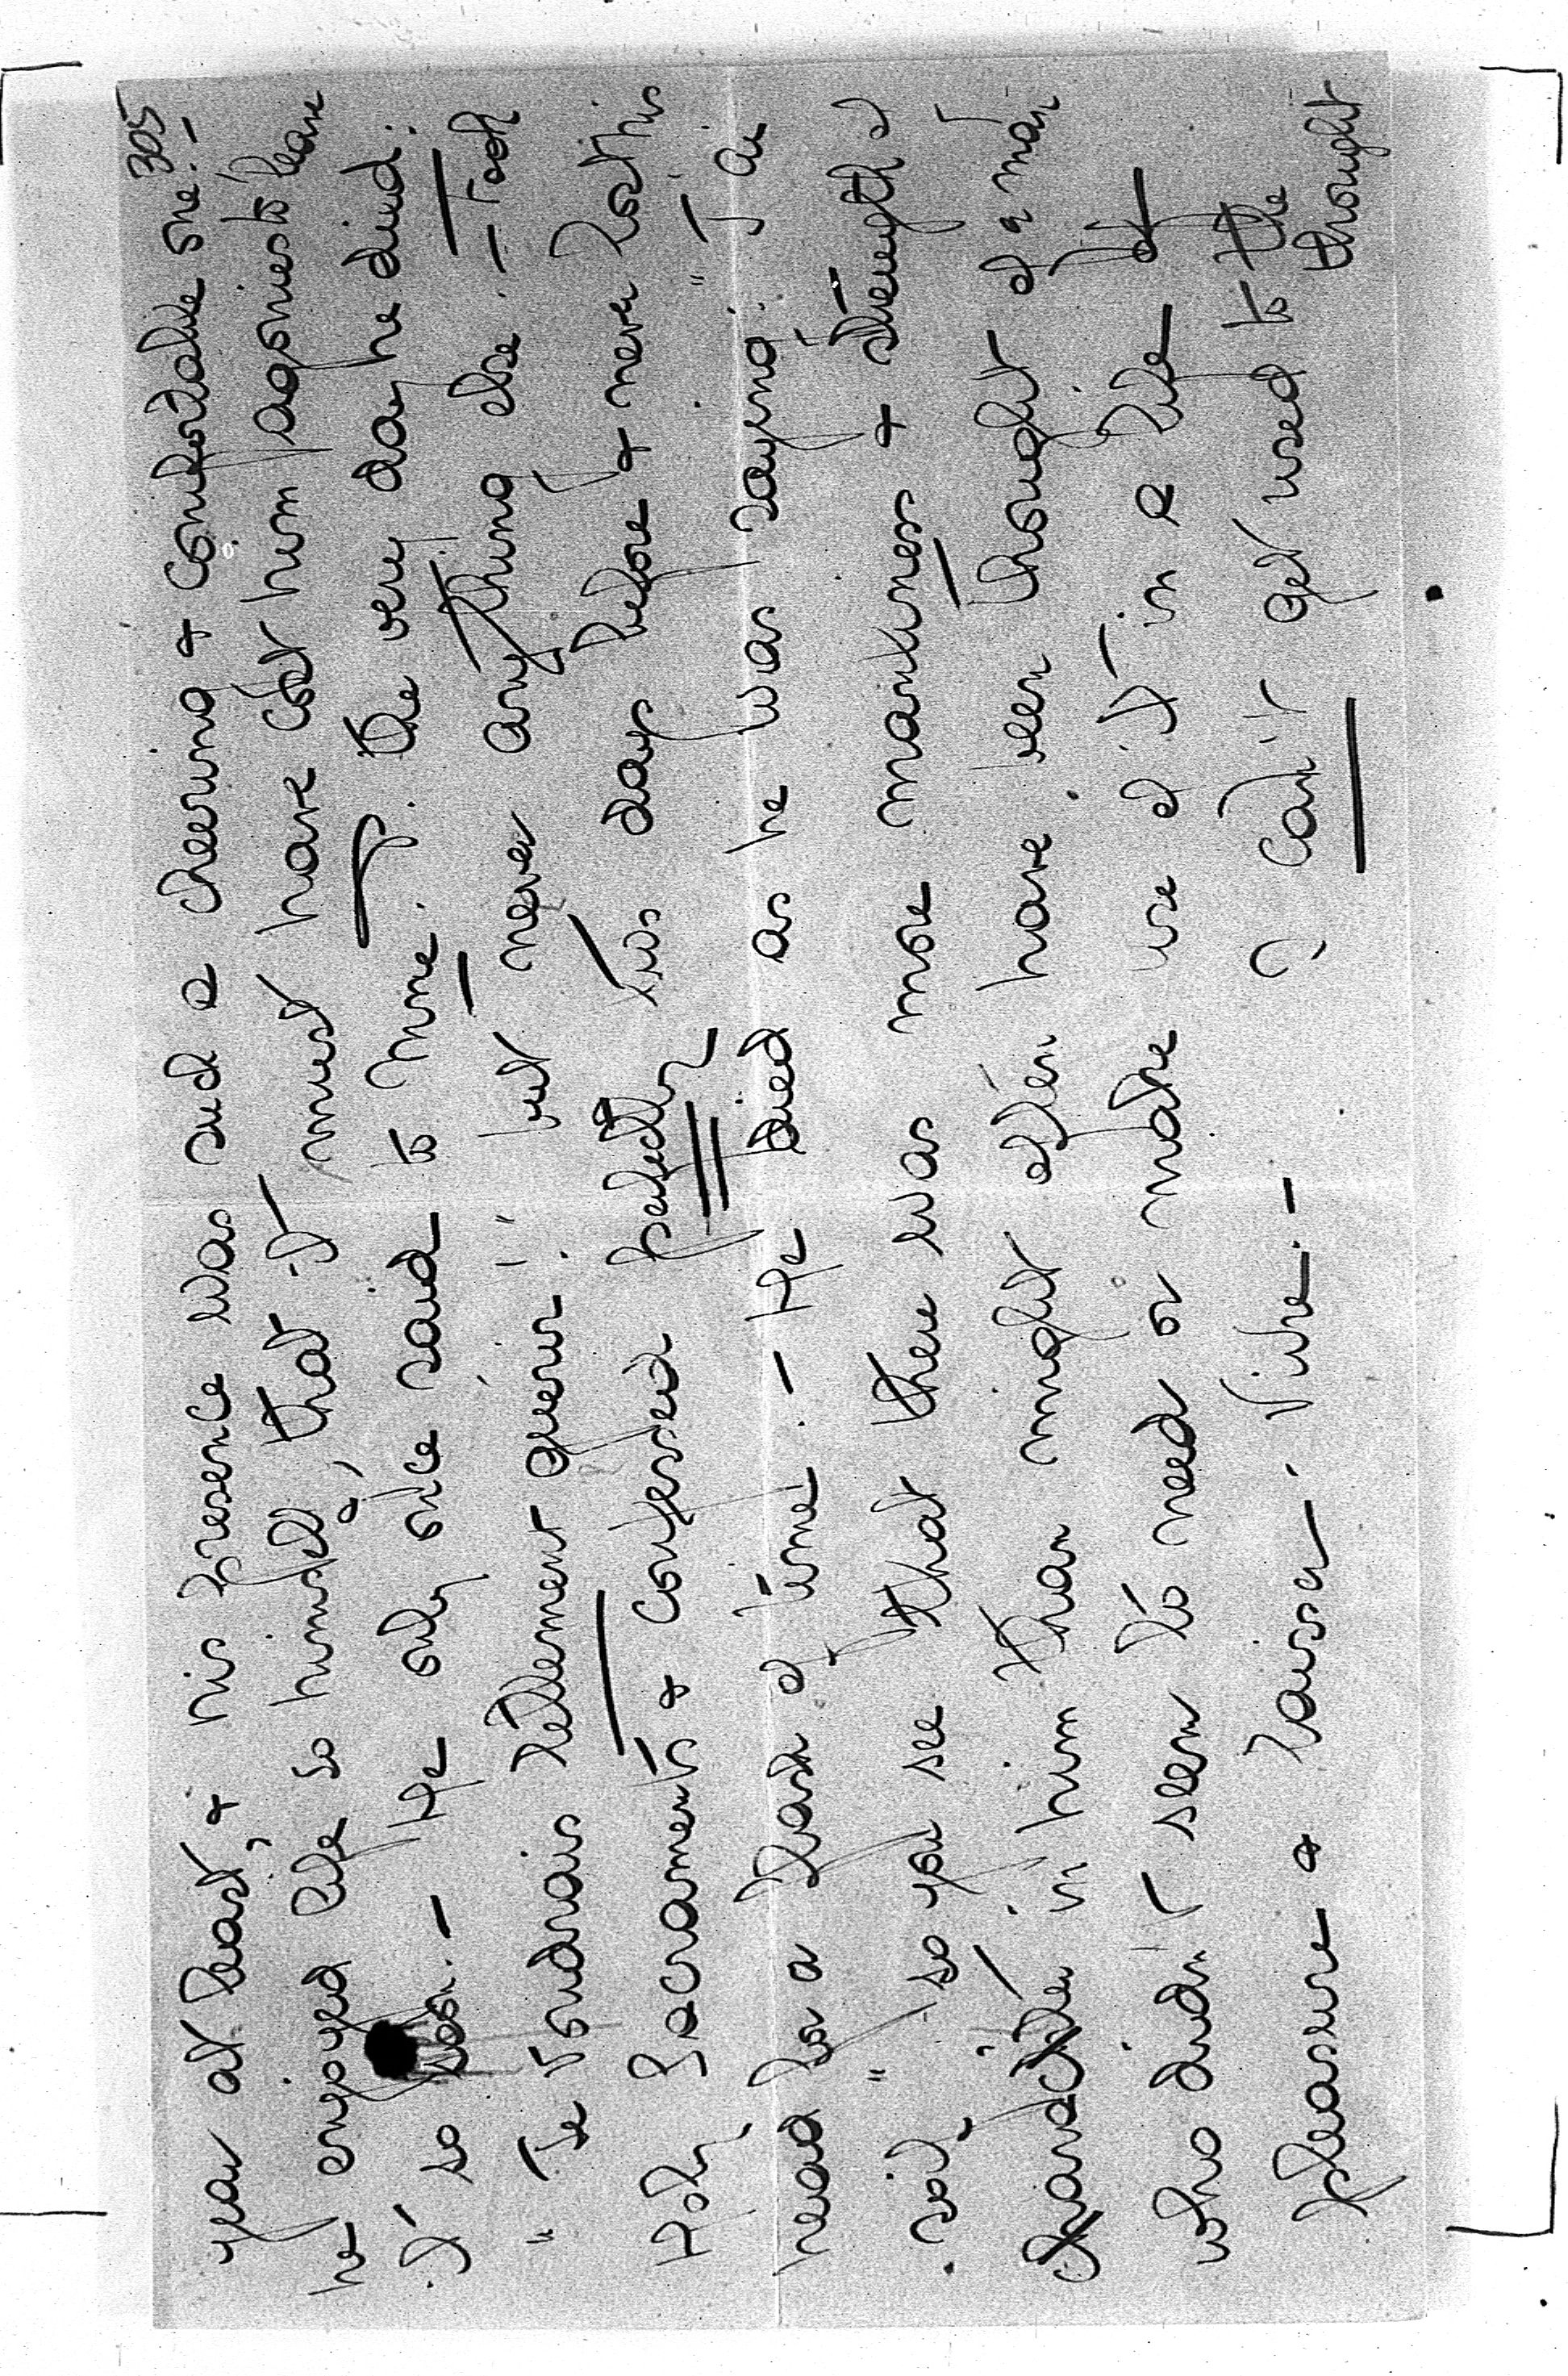 305
year at least, & his presence was such a cheering & comfortable one! –
he enjoyed life so himself, that it must have cost him agonies to leave
it so. – He only once said to Mme. P. the very day he died:
"Je voudrais tellement guérir." but never anything else. – Took
Holy Sacrament & confessed perfectly two days before & never lost his
head for a flash of time. – He died as he was saying: "J'ai
soif" – so you see that there was more manliness & strength of
character in him than might often have been thought of a man
who didn't seem to need or make use of it in a life of
pleasure & laisser vivre. – I can't get used to the
thought